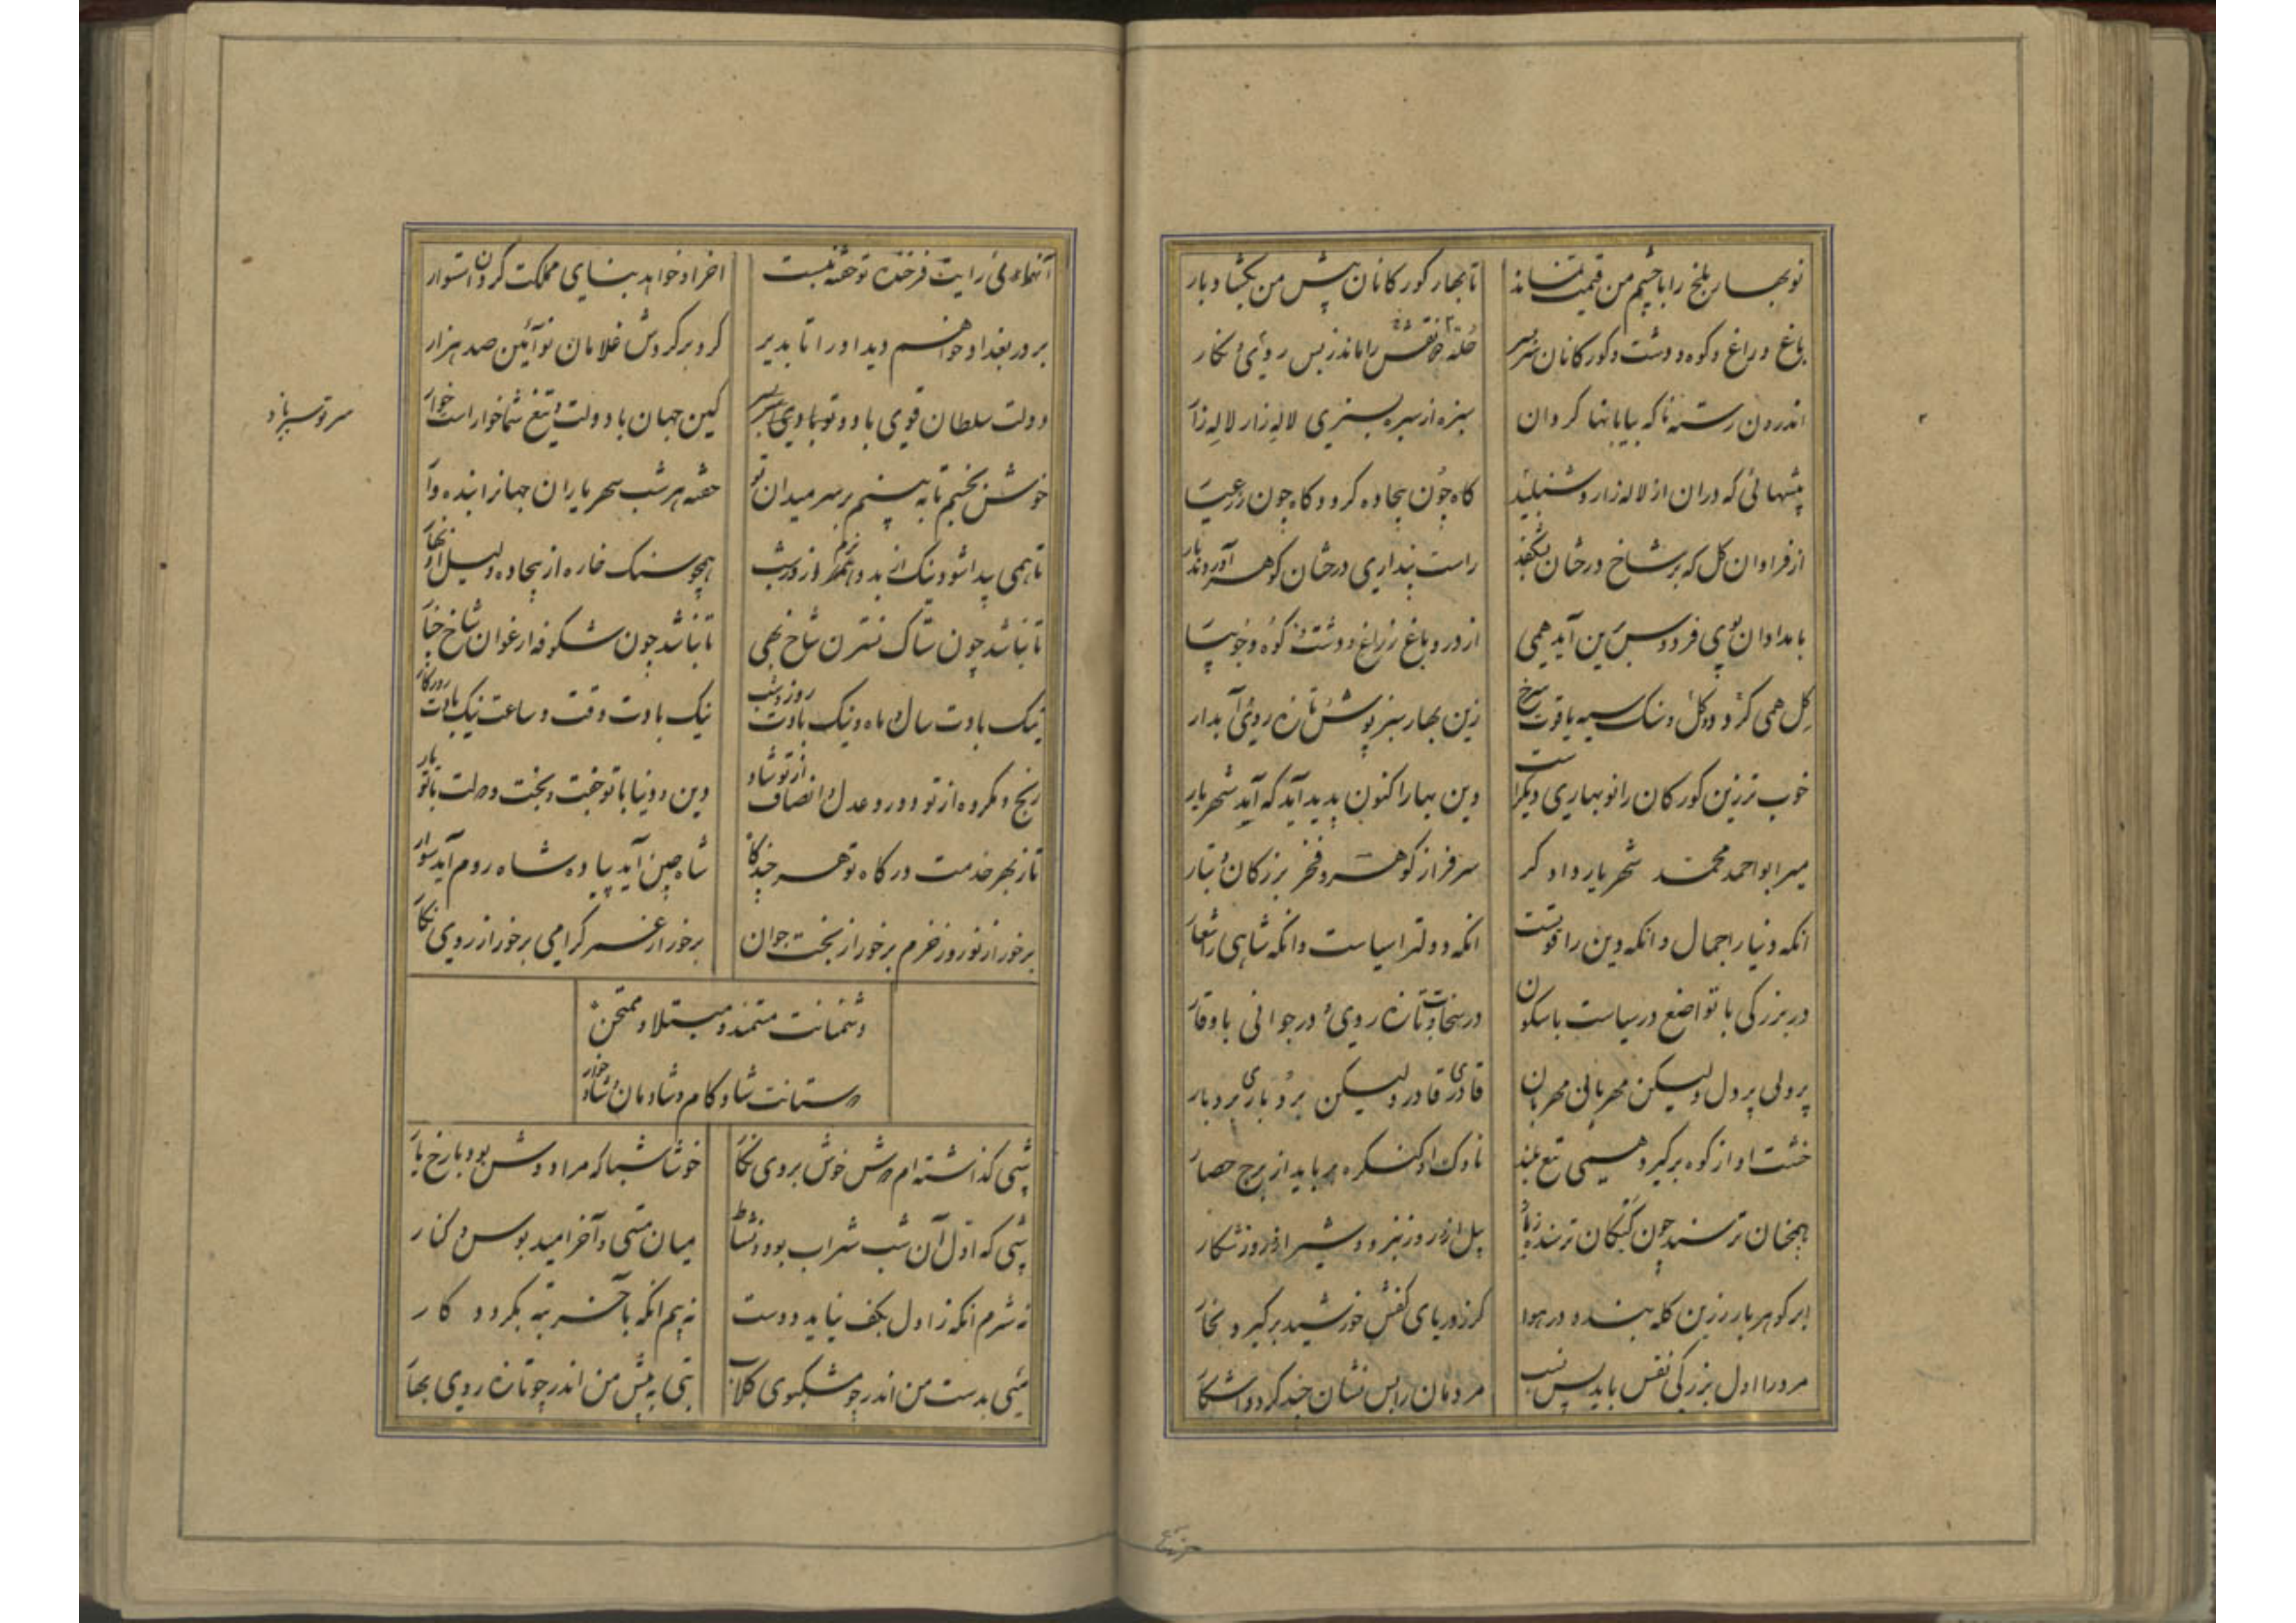 نوبهار بلخ را با چشم من قیمت نماند تا بهار کورکانان پیش من بکشاد بار
باغ و راغ و کوه و دشت و کورکانان سربسر حله را ماند ز بس روی و نکار
اندرون رسته تا که بیابانها کردان سبزه از سبزه بسبزی لاله زار لاله زار
پشهائی که در ان از لاله زار و شنبلید کاه چون بیجاده کردد کاه چون زر عیار
از فراوان کل که بر شاخ درختان بشکفد راست پنداری درختان کوهر آوردند بار
بامدادان بوی فردوس برین آید همی از در و باغ و ز راغ و دشت و ز کوه و جویبار
کل همی کردد و کل و سنک سیه یاقوت سرخ زین بهار سبز پوش تازه روی آبدار
خوب تر زین کورکان را نوبهاری دیکر است وین بهار اکنون پدید آید که آید شهریار
میر ابو احمد محمد شهریار دادکر سرفراز کوهر و فخر بزرکان و تبار
انکه دنیا را جمال و انکه دین را قوتست انکه دولترا سیاست و انکه شاهی را شعار
در بزرکی با تواضع در سیاست با سکون در سخاوت تازه روی و در جوانی با وقار
پردلی پردل ولیکن مهربانی مهربان قادری قادر ولیکن بردباری بردبار
خشت او از کوه برکیرد همی تیغ بلند ناوک او کنکره برباید از برج حصار
همچنان ترسند چون کبکان ترسنده ز باز پیل از و روز نبرد و شیر از و روز شکار
ابر کوهربار زرین کله بندد در هوا کر ز دریای کفش خورشید برکیرد بخار
مرد را اول بزرکی نفس باید پس نسب مردمان را بس نشان چند کردد اشکار
حرنیاع
رایت فرخنده تو خفته نیست اخر او خواهد بنای مملکت کردن استوار
بر در بغداد خواهم دید او را تا بدیر کرد بر کردش غلامان نوآئین صد هزار
دولت سلطان قوی باد و تو بادی سربسر کین جهان با دولت و تیغ شما خوار است خوار
سر تو سبز باد
خوش نخسبم تا نه بینم بر سر میدان تو خفته هر شب شهریاران جهانرا بنده وار
تا همی پیدا شود نیک از بد و روز شب همچو سنک خاره از بیجاده و لیل از نهار
تا نباشد چون ستاک نسترن شاخ بهی تا نباشد چون شکوفه ارغوان شاخ چنار
نیک بادت سال و ماه و نیک بادت روز و شب نیک بادت وقت و ساعت نیک بادت روزکار
رنج و مکروه از تو دور و عدل و انصاف از تو شاد دین و دنیا با تو جفت و بخت و دولت با تو یار
تا ز بهر خدمت درکاه تو هر چندکاه شاه چین آید پیاده شاه روم آید سوار
برخور از نوروز خرم برخور از بخت جوان برخور از عمر کرامی برخور از روی نکار
دشمنانت مستمند و مبتلا و ممتحن
دوستانت شاد کام و شادمان و شاد خوار
شبی کذاشته ام دوش خوش بروی نکار خوشا شبا که مرا دوش بود با رخ یار
شبی که اول آن شب شراب بود و نشاط میان مستی و آخر امید بوس و کنار
نه شرم انکه ز اول بکف نیاید دوست نه بیم انکه باخر تبه بکردد کار
میی بدست من اندر چو مشکبوی کلاب بتی به پیش من اندر چو تازه روی بهار